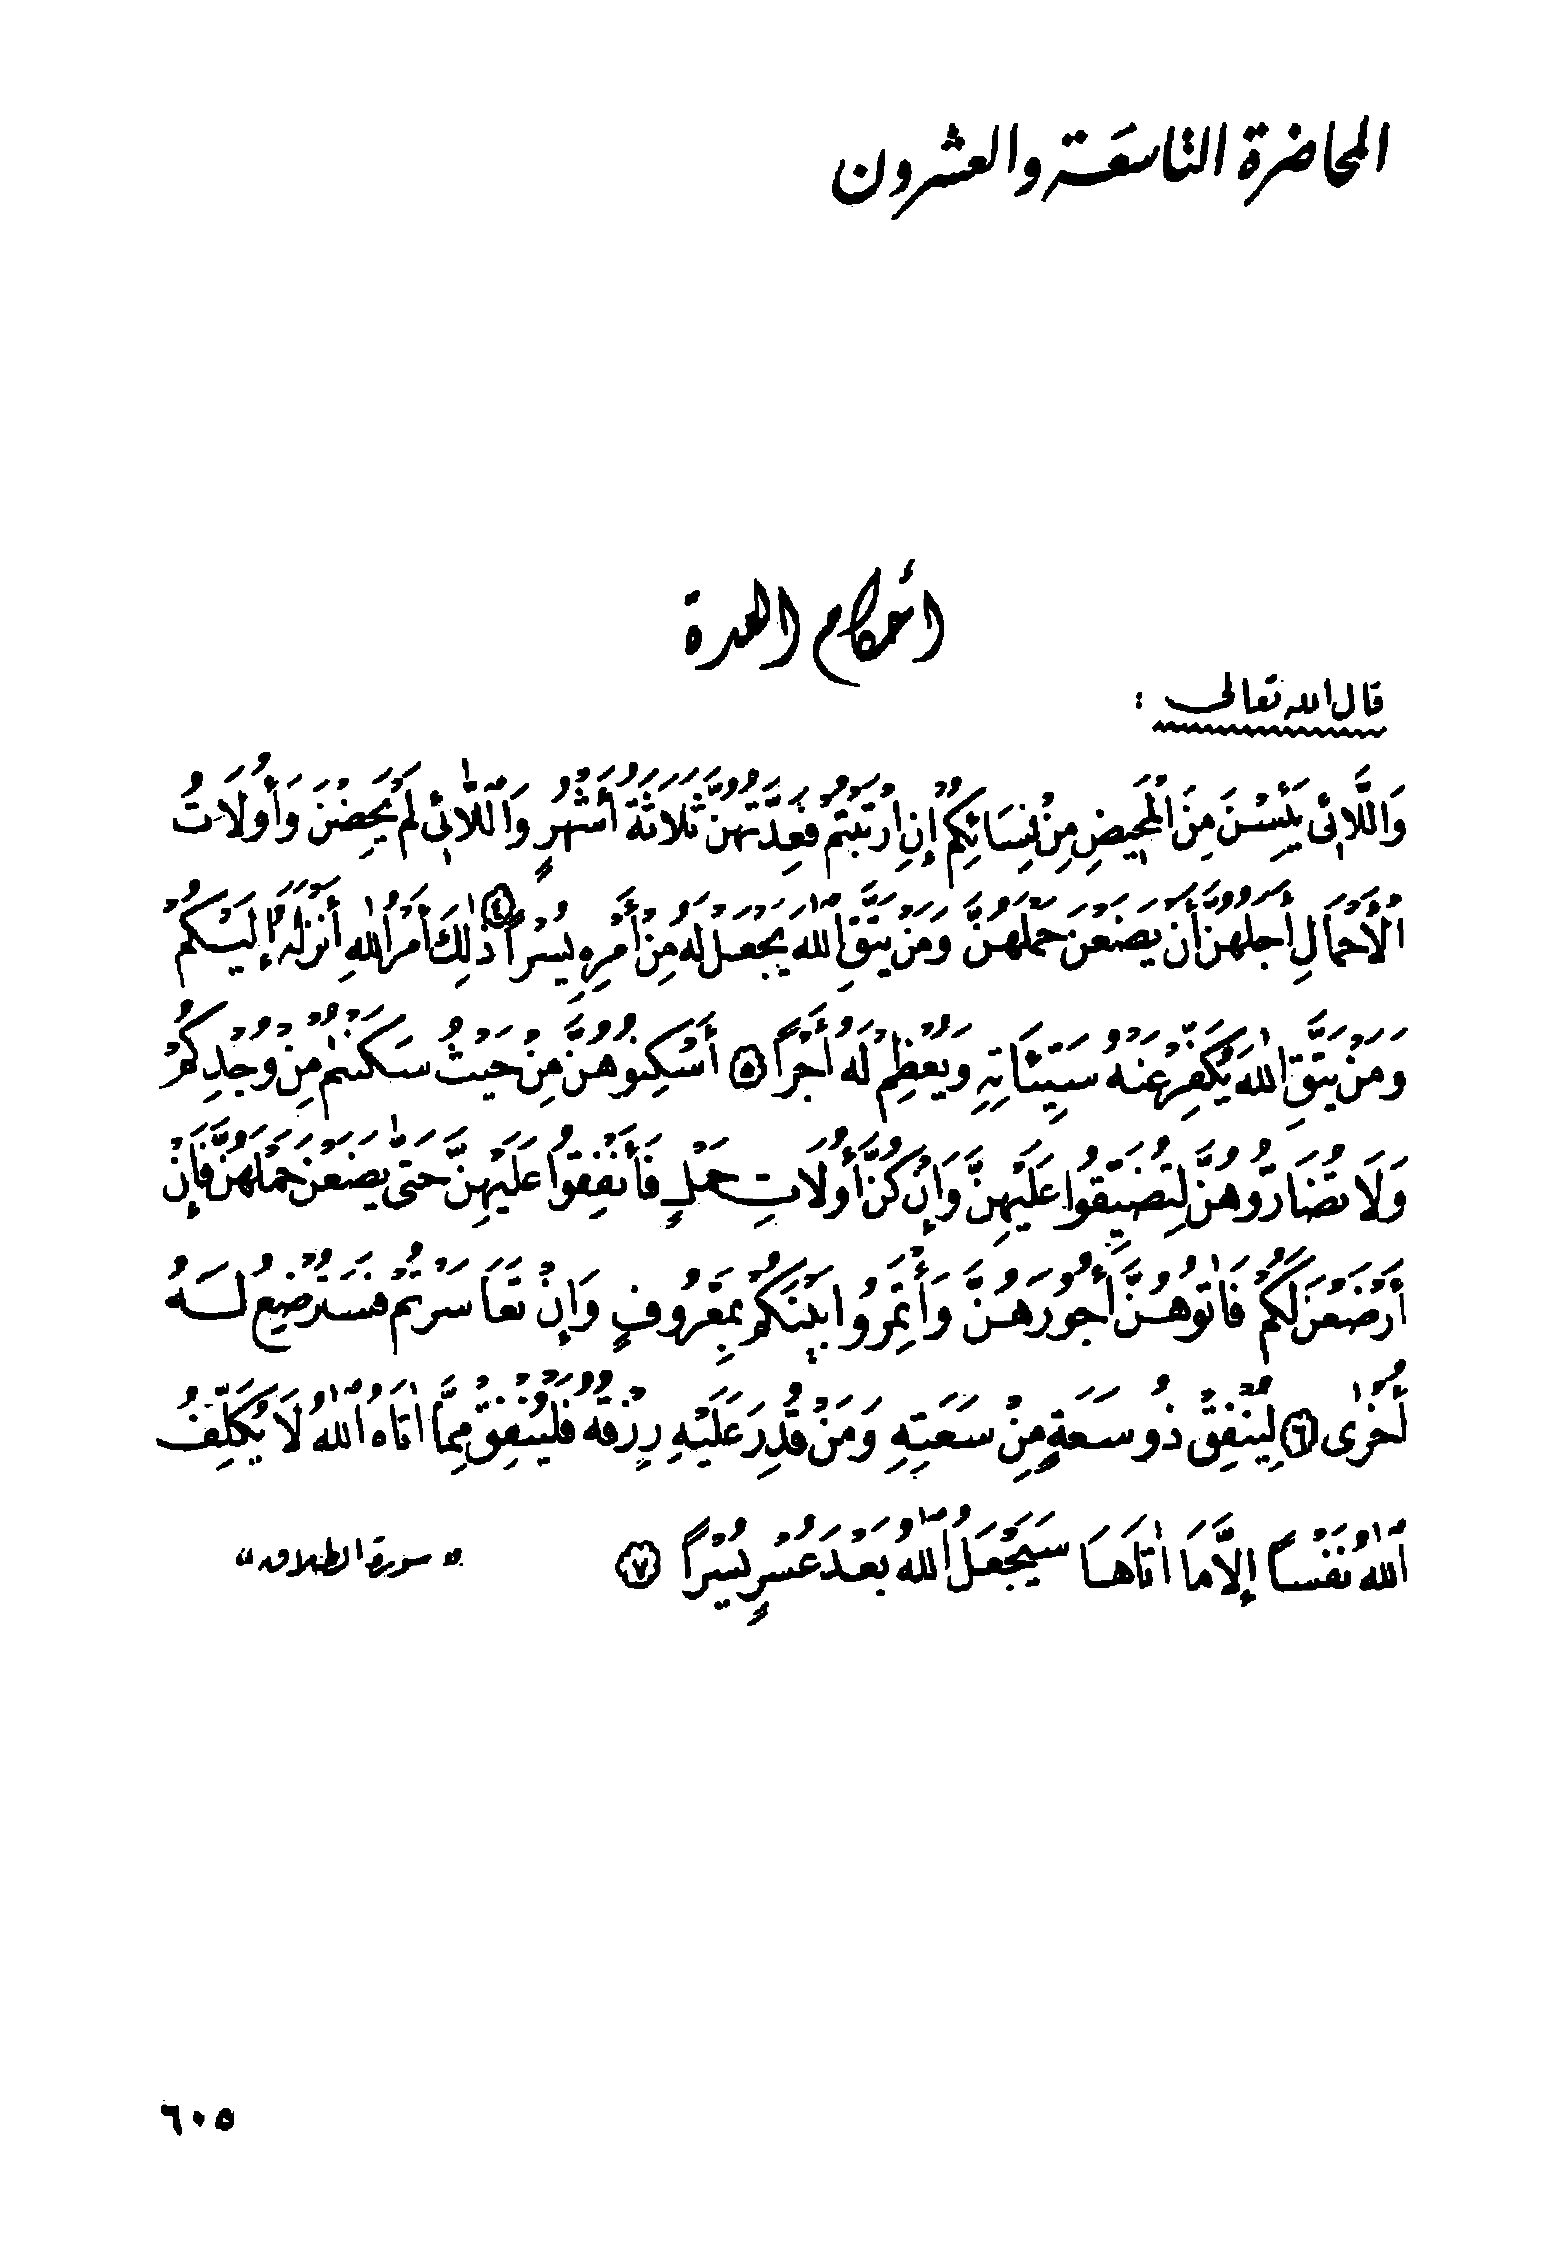 المحاضرة التاسعة والعشرون
أحكام العدة
قال الله تعالى :
وَاللَّائِي يَئِسْنَ مِنَ الْمَحِيضِ مِنْ نِسَائِكُمْ إِنِ ارْتَبْتُمْ فَعِدَّتُهُنَّ ثَلَاثَةُ أَشْهُرٍ وَاللَّائِي لَمْ يَحِضْنَ وَأُولَاتُ
الْأَحْمَالِ أَجَلُهُنَّ أَنْ يَضَعْنَ حَمْلَهُنَّ وَمَنْ يَتَّقِ اللَّهَ يَجْعَلْ لَهُ مِنْ أَمْرِهِ يُسْرًا ٤ ذَٰلِكَ أَمْرُ اللَّهِ أَنْزَلَهُ إِلَيْكُمْ
وَمَنْ يَتَّقِ اللَّهَ يُكَفِّرْ عَنْهُ سَيِّئَاتِهِ وَيُعْظِمْ لَهُ أَجْرًا ٥ أَسْكِنُوهُنَّ مِنْ حَيْثُ سَكَنْتُمْ مِنْ وُجْدِكُمْ
وَلَا تُضَارُّوهُنَّ لِتُضَيِّقُوا عَلَيْهِنَّ وَإِنْ كُنَّ أُولَاتِ حَمْلٍ فَأَنْفِقُوا عَلَيْهِنَّ حَتَّىٰ يَضَعْنَ حَمْلَهُنَّ فَإِنْ
أَرْضَعْنَ لَكُمْ فَاٰتُوهُنَّ أُجُورَهُنَّ وَأْتَمِرُوا بَيْنَكُمْ بِمَعْرُوفٍ وَإِنْ تَعَاسَرْتُمْ فَسَتُرْضِعُ لَهُ
أُخْرَىٰ ٦ لِيُنْفِقْ ذُو سَعَةٍ مِنْ سَعَتِهِ وَمَنْ قُدِرَ عَلَيْهِ رِزْقُهُ فَلْيُنْفِقْ مِمَّا اٰتَاهُ اللَّهُ لَا يُكَلِّفُ
اللَّهُ نَفْسًا إِلَّا مَا اٰتَاهَا سَيَجْعَلُ اللَّهُ بَعْدَ عُسْرٍ يُسْرًا ٧ « سورة الطلاق »
٦٠٥